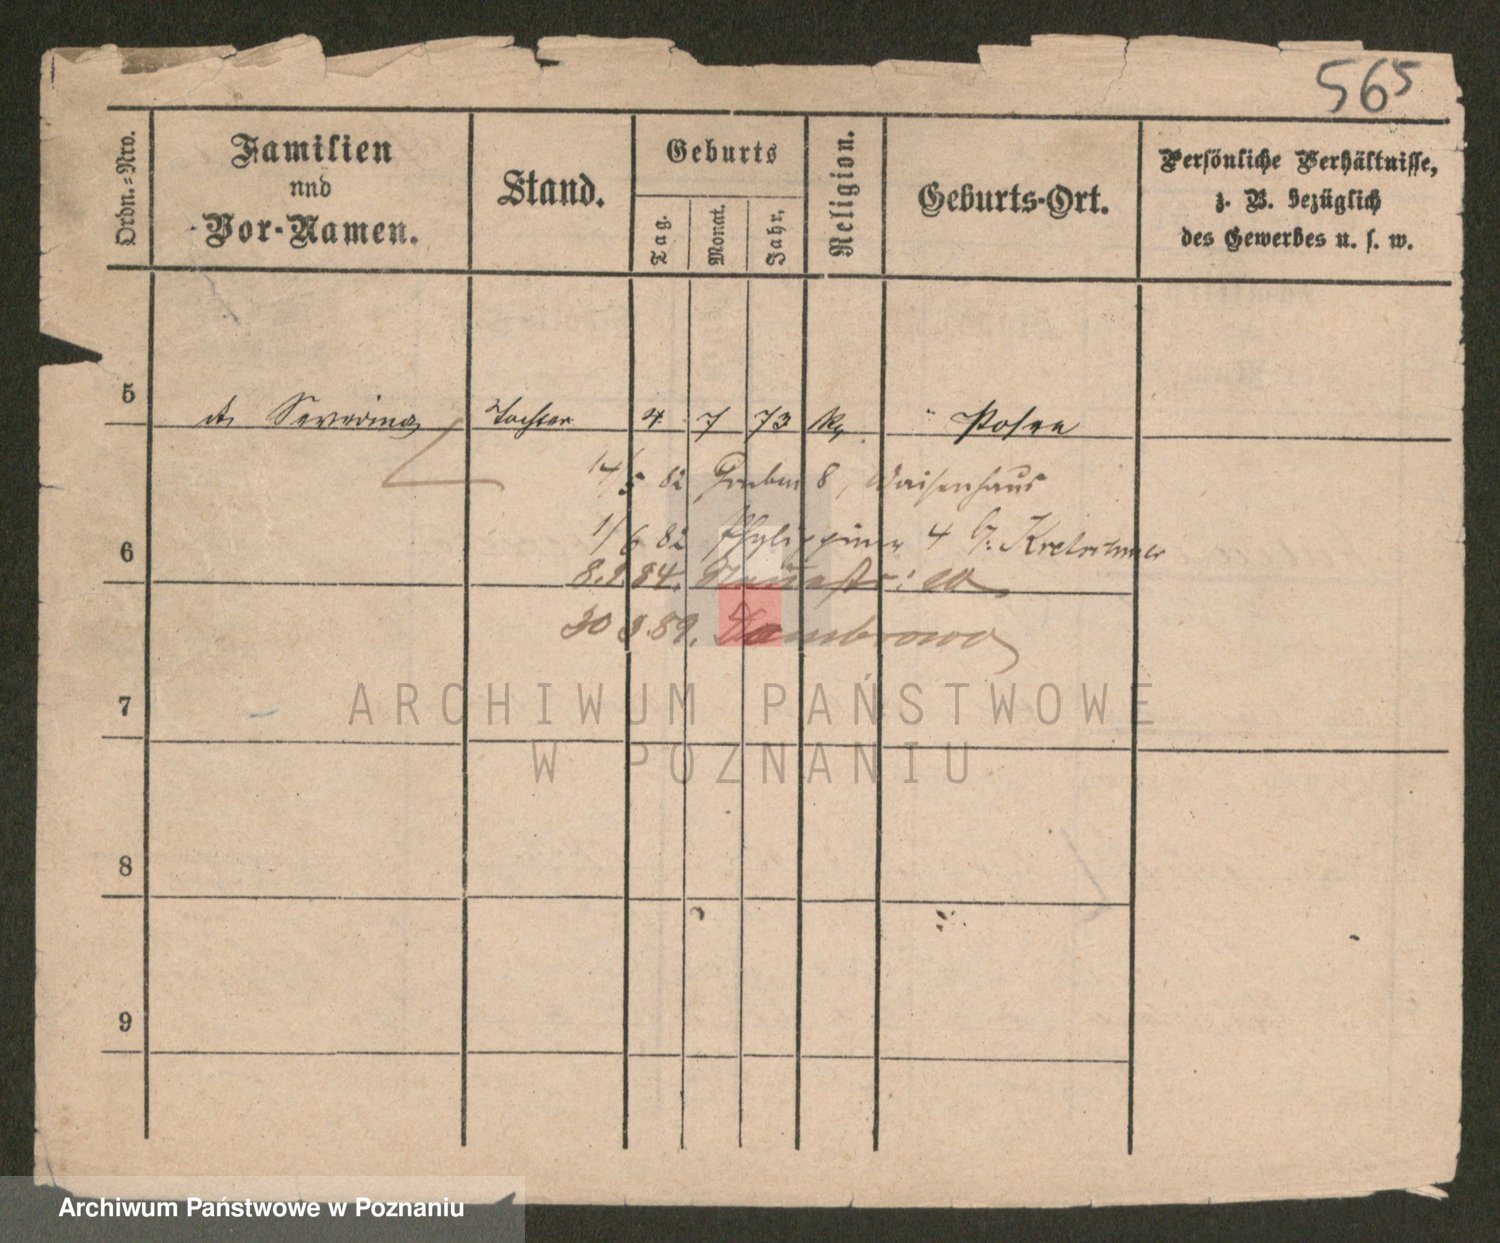 565
Ordn.-Nro.
Familien
und
Vor-Namen.
Stand.
Geburts
Tag.
Monat.
Jahr.
Religion.
Geburts-Ort.
Persönliche Verhältnisse,
z. B. bezüglich
des Gewerbes u. s. w.
5 Severina Tochter 4 7 73 k. " Posen
14/5 82 Graben 8, Waisenhaus
6
1/6 82 4 Kretschmer
8. 84.
30 3.89. Dombrowo
7
8
9
ARCHIWUM PAŃSTWOWE
W POZNANIU
Archiwum Państwowe w Poznaniu